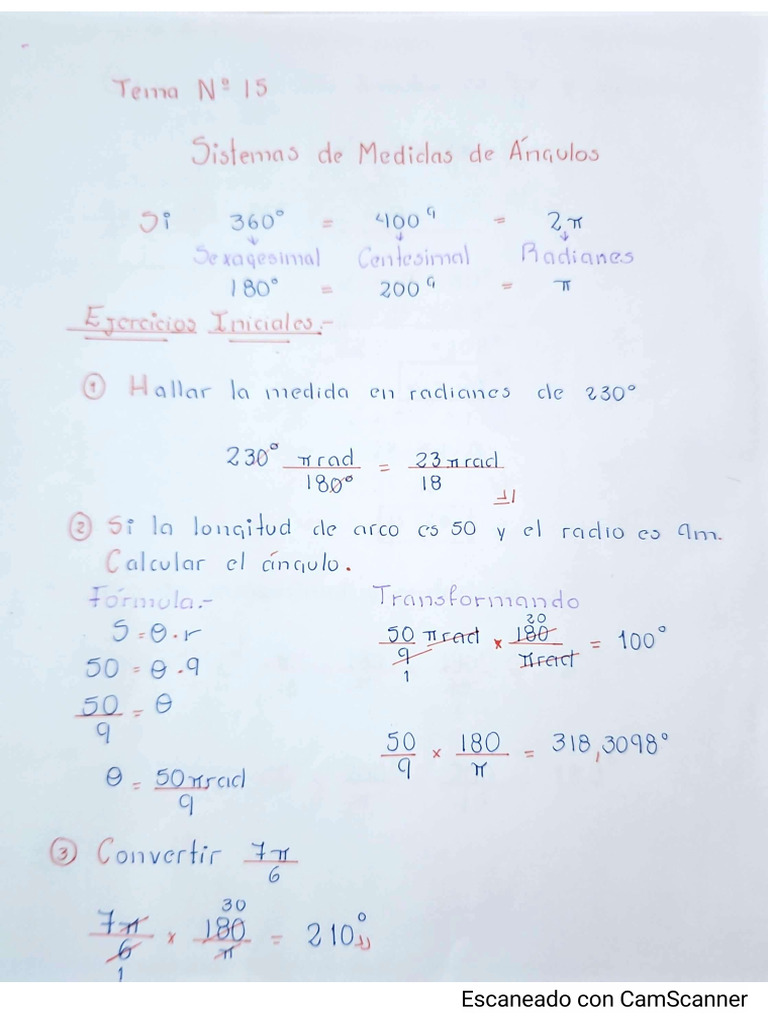 Tema Nº 15
Sistemas de Medidas de Ángulos
Si 360° = 400ᵍ = 2π
Sexagesimal Centesimal Radianes
180° = 200ᵍ = π
Ejercicios Iniciales.-
① Hallar la medida en radianes de 230°
230° π rad / 180° = 23 π rad / 18
② Si la longitud de arco es 50 y el radio es 9m.
Calcular el ángulo.
Fórmula.-
S = θ . r
50 = θ . 9
50 / 9 = θ
θ = 50 π rad / 9
Transformando
50 / 9 π rad x 180 / π rad = 100°
20
1
50 / 9 x 180 / π = 318,3098°
③ Convertir 7π / 6
30
7π / 6 x 180 / π = 210°
1
Escaneado con CamScanner